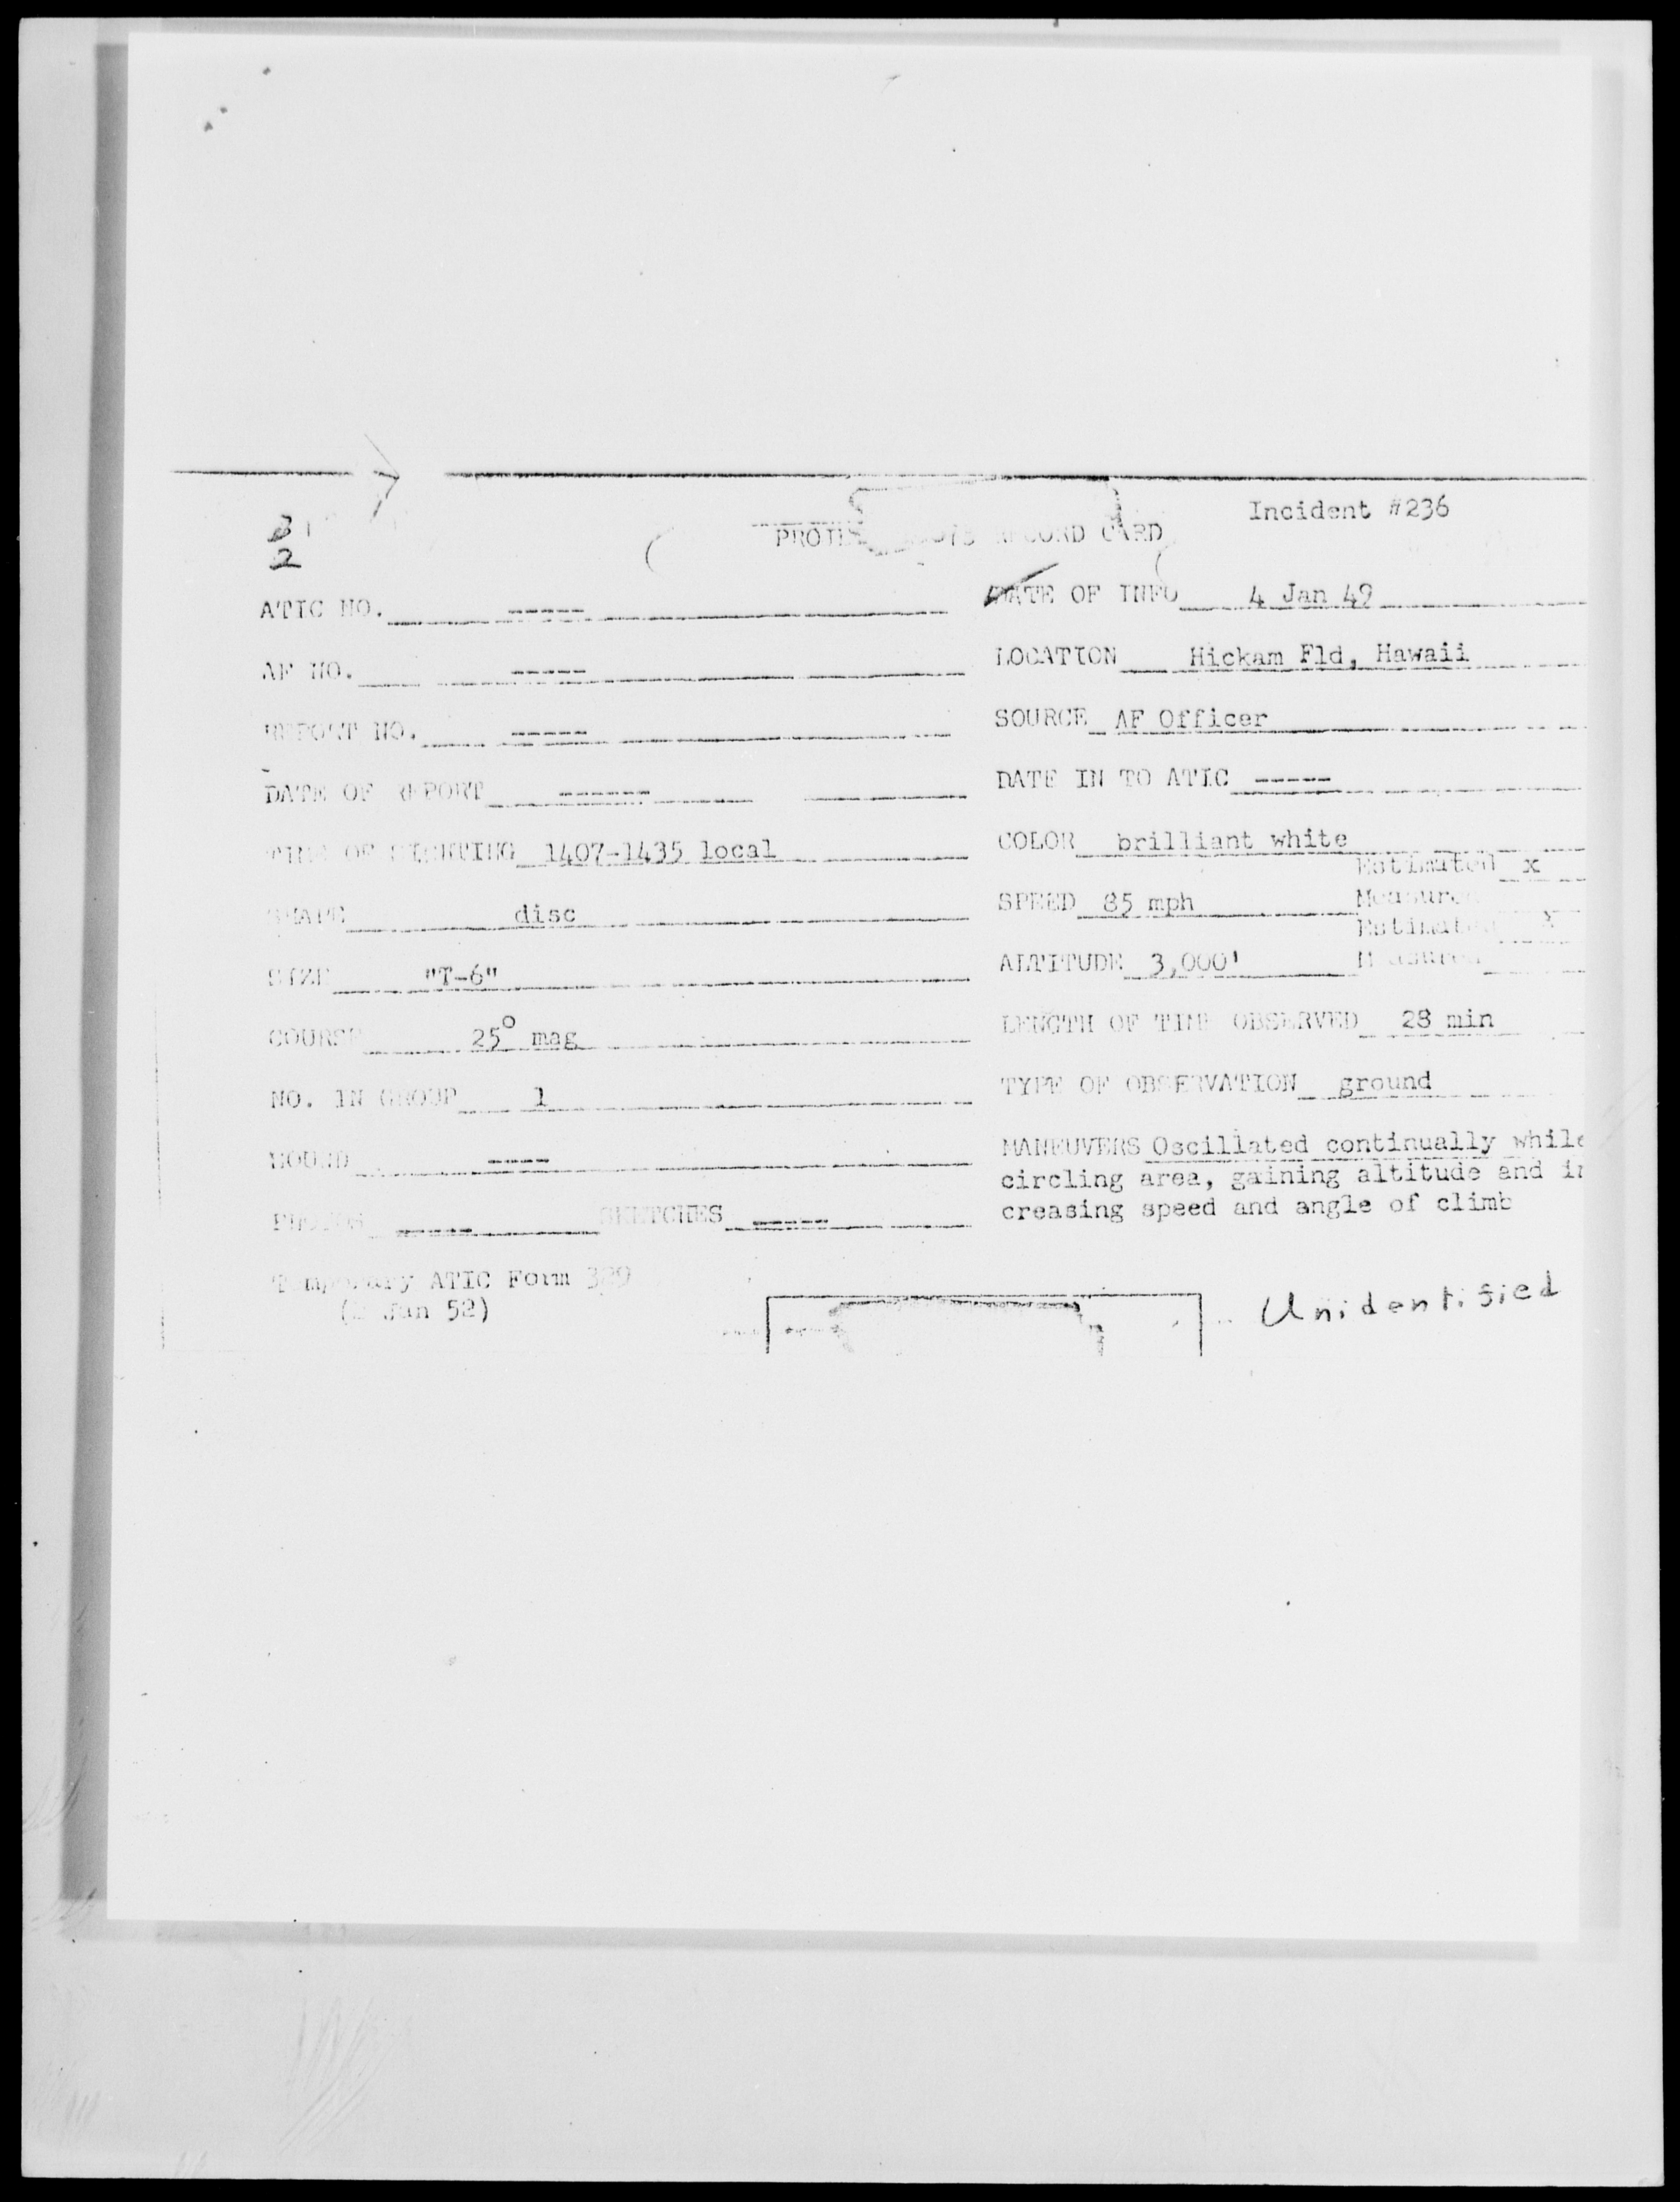 Incident #236
RECORD CARD
2
ATIC NO. -----
DATE OF INFO 4 Jan 49
AF NO. -----
LOCATION Hickam Fld, Hawaii
REPORT NO. -----
SOURCE AF Officer
DATE OF REPORT ------
DATE IN TO ATIC -----
TIME OF SIGHTING 1407-1435 local
COLOR brilliant white
SHAPE disc
SPEED 85 mph Estimated x
Measured
SIZE "T-6"
ALTITUDE 3,000' Estimated x
Measured
COURSE 25° mag
LENGTH OF TIME OBSERVED 28 min
NO. IN GROUP 1
TYPE OF OBSERVATION ground
SOUND ----
MANEUVERS Oscillated continually while
circling area, gaining altitude and in
creasing speed and angle of climb
PHOTOS ----- SKETCHES -----
Temporary ATIC Form 329
(2 Jan 52)
Unidentified